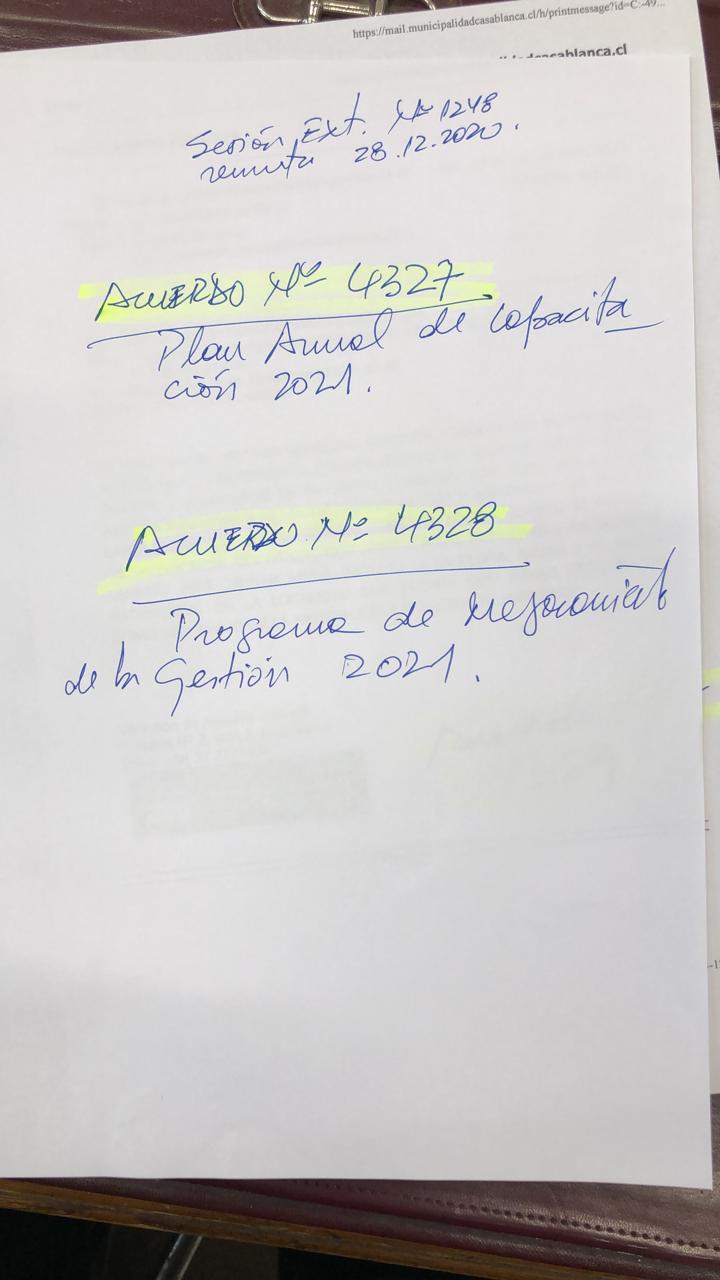 https://mail.municipalidadcasablanca.cl/h/printmessage?id=C:-49...
casablanca.cl
Sesión Ext. Nº 1248
remota 28.12.2020.
ACUERDO Nº 4327
Plan Anual de Capacita
ción 2021.
ACUERDO Nº 4328
Programa de Mejoramient
de la Gestión 2021.